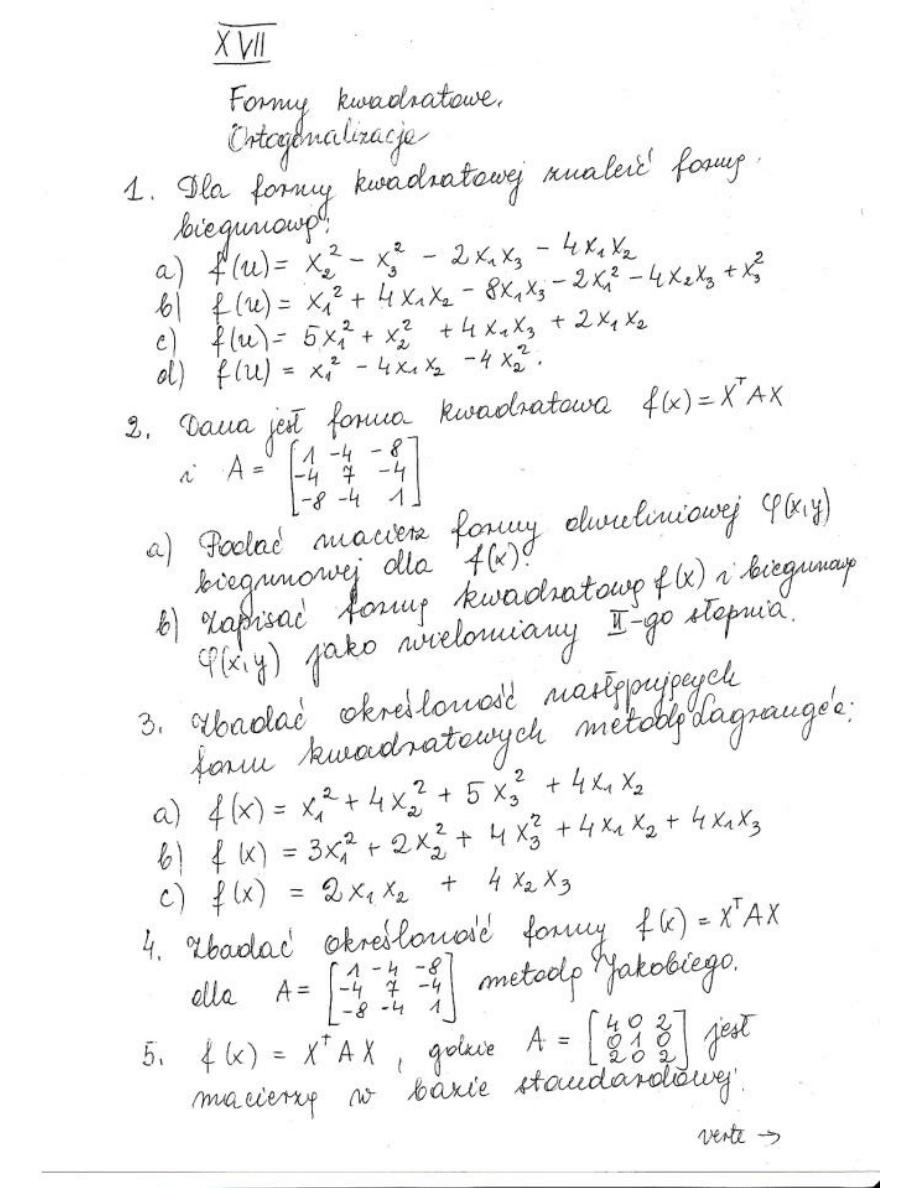 XVII
Formy kwadratowe.
Ortogonalizacja
1. Dla formy kwadratowej znaleźć formę
biegunową:
a) f(u) = x₂² - x₃² - 2x₁x₃ - 4x₁x₂
b) f(u) = x₁² + 4x₁x₂ - 8x₁x₃ - 2x₁² - 4x₂x₃ + x₃²
c) f(u) = 5x₁² + x₂² + 4x₁x₃ + 2x₁x₂
d) f(u) = x₁² - 4x₁x₂ - 4x₂².
2. Dana jest forma kwadratowa f(x) = XᵀAX
i A = [1 -4 -8
-4 7 -4
-8 -4 1]
a) Podać macierz formy dwuliniowej φ(x,y)
biegunowej dla f(x).
b) Zapisać formę kwadratową f(x) i biegunową
φ(x,y) jako wielomiany II-go stopnia.
3. Zbadać określoność następujących
form kwadratowych metodą Lagrange'a:
a) f(x) = x₁² + 4x₂² + 5x₃² + 4x₁x₂
b) f(x) = 3x₁² + 2x₂² + 4x₃² + 4x₁x₂ + 4x₁x₃
c) f(x) = 2x₁x₂ + 4x₂x₃
4. Zbadać określoność formy f(x) = XᵀAX
dla A = [1 -4 -8
-4 7 -4
-8 -4 1] metodą Jakobiego.
5. f(x) = XᵀAX, gdzie A = [4 0 2
0 1 0
2 0 2] jest
macierzą w bazie standardowej.
verte →